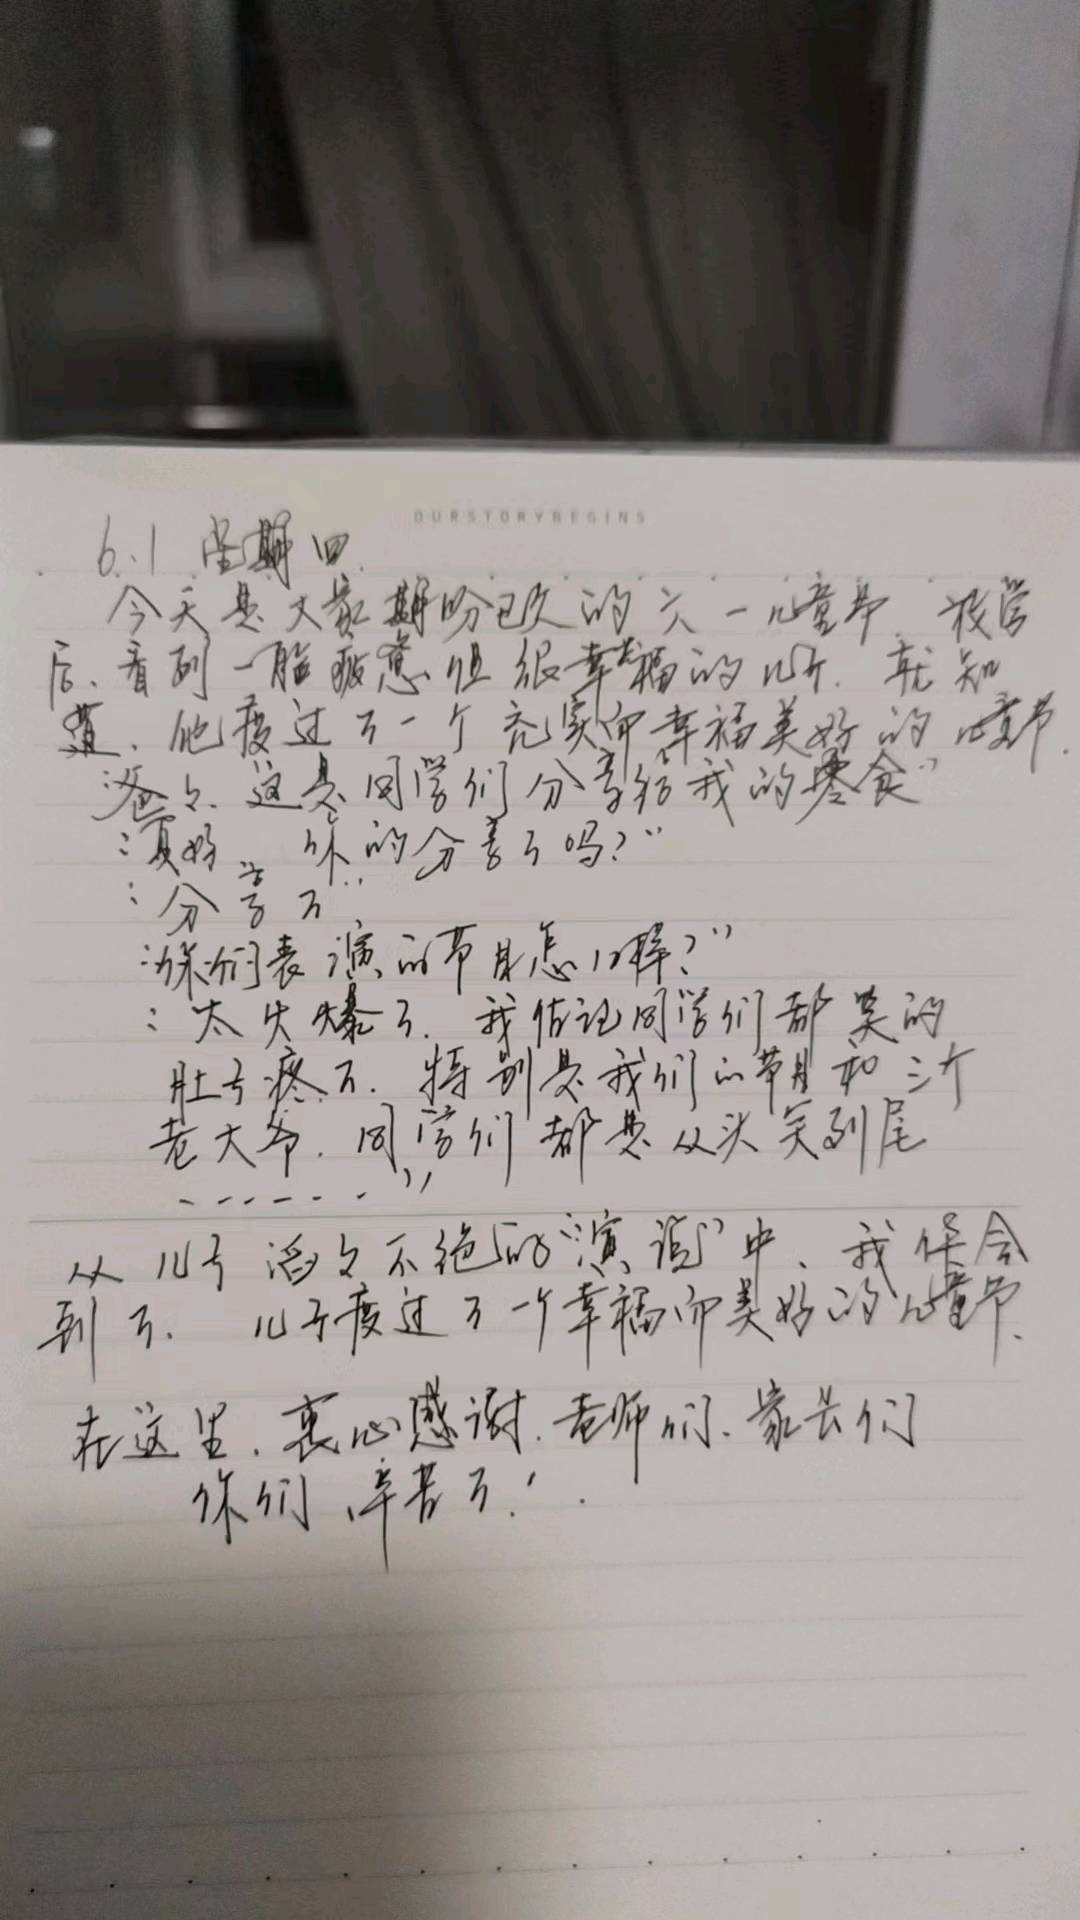 OURSTORYBEGINS
6.1 星期四
今天是大家期盼已久的六一儿童节,放学
后,看到一脸疲惫但很幸福的儿子,就知
道,他度过了一个充实而幸福美好的儿童节.
"爸々,这是同学们分享给我的零食"
:"真好,你的分享了吗?"
:"分享了"
:"你们表演的节目怎么样?"
:"太火爆了,我估计同学们都笑的
肚子疼了,特别是我们的节目和三个
老大爷,同学们都是从头笑到尾
------"
从儿子滔々不绝的"演说"中,我体会
到了,儿子度过了一个幸福而美好的儿童节.
在这里,衷心感谢,老师们、家长们
你们辛苦了!